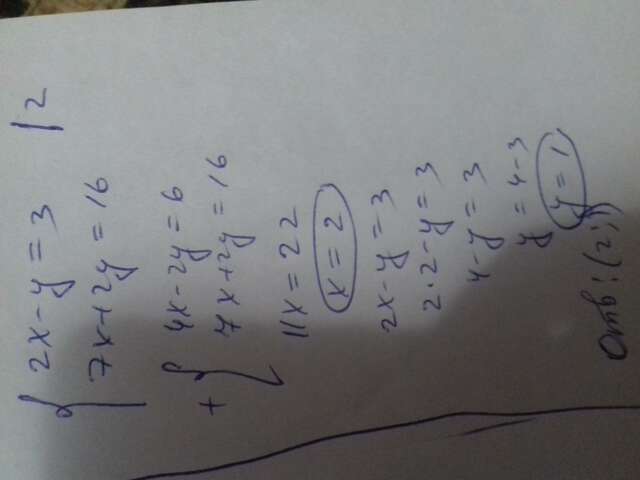 { 2x-y=3 |2
7x+2y=16
+ { 4x-2y=6
7x+2y=16
11x=22
x=2
2x-y=3
2·2-y=3
4-y=3
y=4-3
y=1
Отв: (2;1)